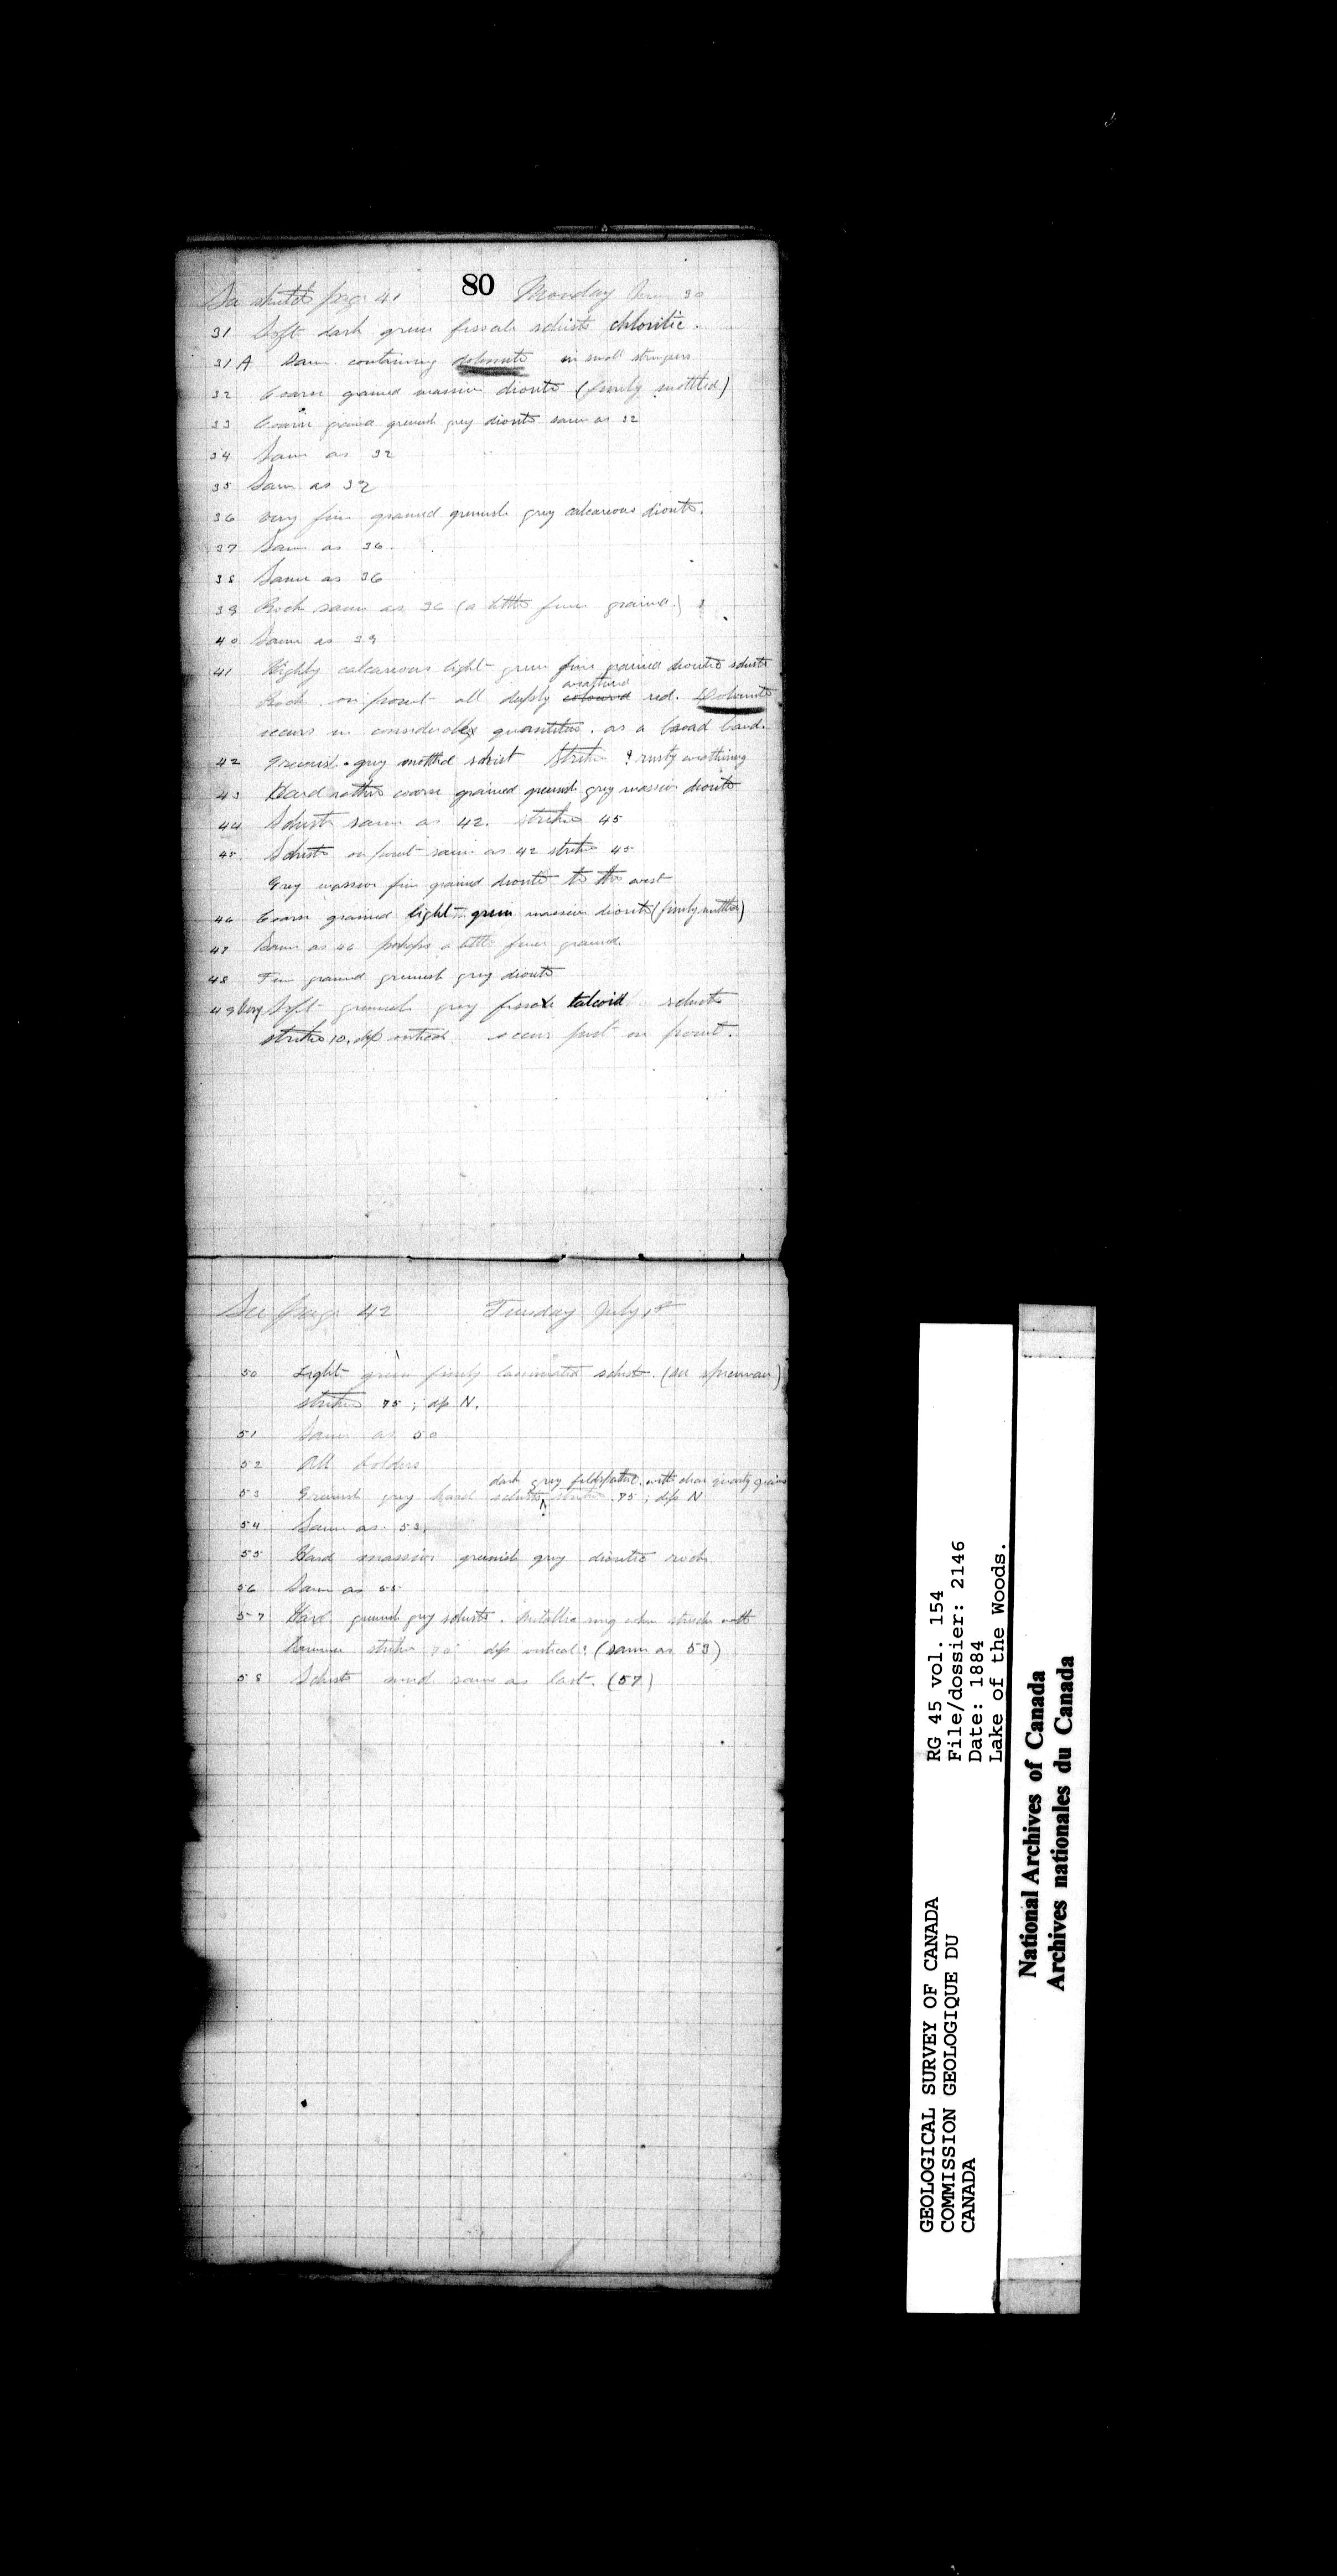 80
See sketch page 41 Monday June 30
31 Soft dark green fissile schists chloritic.
31 A Same containing dolomite in small stringers
32 Coarse grained massive diorite (finely mottled)
33 Coarse grained greenish grey diorite same as 32
34 Same as 32
35 Same as 32
36 very fine grained greenish grey calcareous diorite.
37 Same as 36.
38 Same as 36
39 Rock same as 36 (a little finer grained)
40 Same as 39
41 Highly calcareous light green fine grained dioritic schists
weathered
Rock on point all deeply coloured red. Dolomite
occurs in considerable quantities. as a broad band.
42 Greenish-grey mottled schist Strike ? rusty weathering
43 Hard rather coarse grained greenish grey massive diorite
44 Schists same as 42. strike 45
45 Schists on point same as 42 strike 45
Grey massive fine grained diorite to the west
46 Coarse grained light green massive diorite (finely mottled)
47 Same as 46 perhaps a little finer grained.
48 Fine grained greenish grey diorite
49 Very Soft greenish grey fissile talcoid schists
strike 10. dip vertical occur just on point.
See page 42 Tuesday July 1st
50 Light green finely laminated schists. (see specimen)
strike 75; dip N.
51 Same as 50
52 All bolders
dark grey feldspathic. with clear quartz grains
53 Greenish grey hard schists strike 75; dip N
54 Same as 53.
55 Hard massive greenish grey dioritic rock
56 Same as 55
57 Hard greenish grey schists. Metallic ring when struck with
hammer strike 70 dip vertical? (same as 53)
58 Schists same as last. (57)
GEOLOGICAL SURVEY OF CANADA
COMMISSION GEOLOGIQUE DU
CANADA
RG 45 vol. 154
File/dossier: 2146
Date: 1884
Lake of the Woods.
National Archives of Canada
Archives nationales du Canada